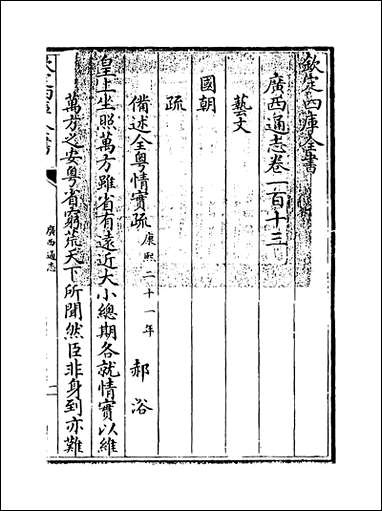 欽定四庫全書
廣西通志卷一百十三
藝文
國朝
疏
備述全粤情實疏康熙二十一年 郝浴
皇上坐照萬方雖省有遠近大小總期各就情實以維
萬方之安粤省窮荒天下所聞然臣非身到亦難
廣西通志